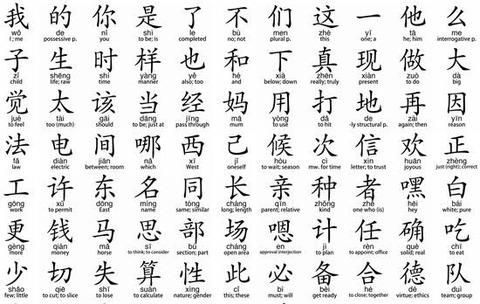 我 的 你 是 了 不 们 这 一 他 么
wǒ de nǐ shì le bù men zhè yī tā me
I ; me possessive p. you to be; is completed no; not plural p. this one; a he; him interrogative p.
子 生 时 样 也 和 下 真 现 做 大
zǐ shēng shí yàng yě hé xià zhēn xiàn zuò dà
child life; raw time manner also; too and below; down really; truly present to do big
觉 太 该 当 经 妈 用 打 地 再 因
jué tài gāi dāng jīng mā yòng dǎ de zài yīn
to feel too (much) should to be; just at pass through mum to use to hit -ly structural p. again; then reason
法 电 间 哪 西 己 候 次 信 欢 正
fǎ diàn jiān nǎ xī jǐ hòu cì xìn huān zhèng
law electric between; room which West oneself to wait; season mw. for time letter; to trust joyous just (right); correct
工 许 东 名 同 长 亲 种 者 嘿 白
gōng xǔ dōng míng tóng cháng qīn zhǒng zhě hēi bái
work to permit East name same; similar long; length parent; relative kind one who (is) hey white; pure
更 钱 马 思 部 场 嗯 计 任 确 吃
gèng qián mǎ sī bù chǎng en jì rèn què chī
more money horse to think; to consider section; part open area approval interjection to plan to appoint; office solid; really to eat
少 切 失 算 性 此 必 备 合 德 队
shǎo qiē shī suàn xìng cǐ bì bèi hé dé duì
few; little to cut; to slice to lose to calculate nature; gender this; these must; will get ready to close; together virtue; ethics team; group